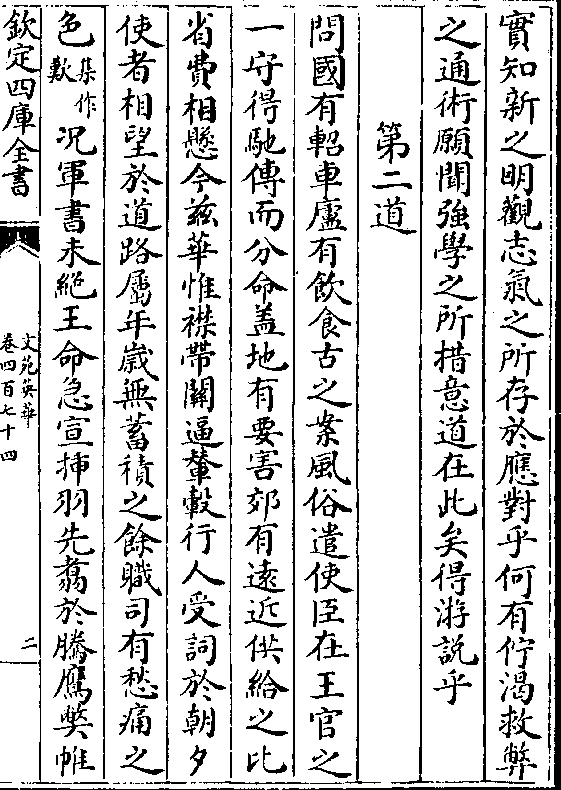 實知新之明觀志氣之所存於應對乎何有佇渴救弊
之通術願聞強學之所措意道在此矣得游説乎
第二道
問國有軺車廬有飲食古之案風俗遣使臣在王官之
一守得馳傳而分命盖地有要害郊有逺近供給之比
省費相懸今兹華惟襟帶關逼輦轂行人受詞於朝夕
使者相望於道路屬年嵗無蓄積之餘職司有愁痛之
色集作歎况軍書未絶王命急宣揷羽先翥於騰鷹弊帷
欽定四庫全書
文苑英華
卷四百七十四
二